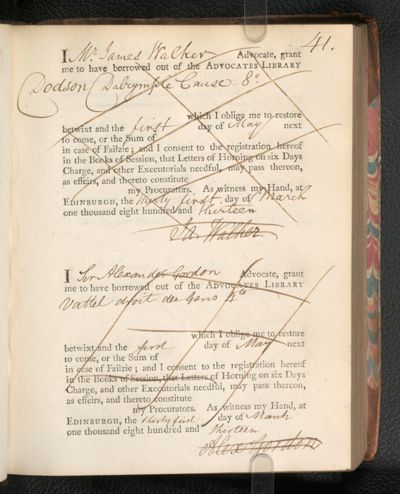 41.
I Mr. James Walker Advocate, grant
me to have borrowed out of the ADVOCATES LIBRARY
Dodson Dalrymple Cause 8o.
which I oblige me to restore
betwixt and the first day of May next
to come, or the Sum of
in case of Failzie; and I consent to the registration hereof
in the Books of Session, that Letters of Horning on six Days
Charge, and other Executorials needful, may pass thereon,
as effeirs, and thereto constitute
my Procurators. As witness my Hand, at
EDINBURGH, the thirty first day of March
one thousand eight hundred and thirteen
Ja. Walker
I Sir Alexander Gordon Advocate, grant
me to have borrowed out of the ADVOCATES LIBRARY
Vattel droit des Gens 4to
which I oblige me to restore
betwixt and the first day of May next
to come, or the Sum of
in case of Failzie; and I consent to the registration hereof
in the Books of Session, that Letters of Horning on six Days
Charge, and other Executorials needful, may pass thereon,
as effeirs, and thereto constitute
my Procurators. As witness my Hand, at
EDINBURGH, the thirty first day of March
one thousand eight hundred and thirteen
Alex Gordon